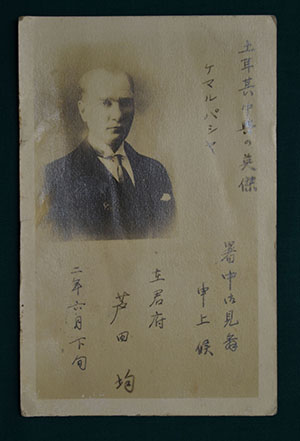 土耳其中興の英傑
ケマルパシャ
暑中御見舞
申上候
在君府
芦田均
二年六月下旬